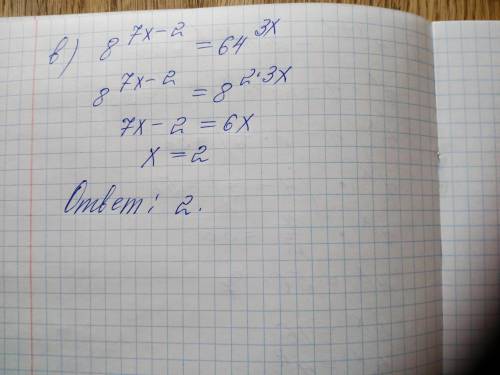 в) 8^{7x-2} = 64^{3x}
8^{7x-2} = 8^{2·3x}
7x - 2 = 6x
x = 2
Ответ: 2.